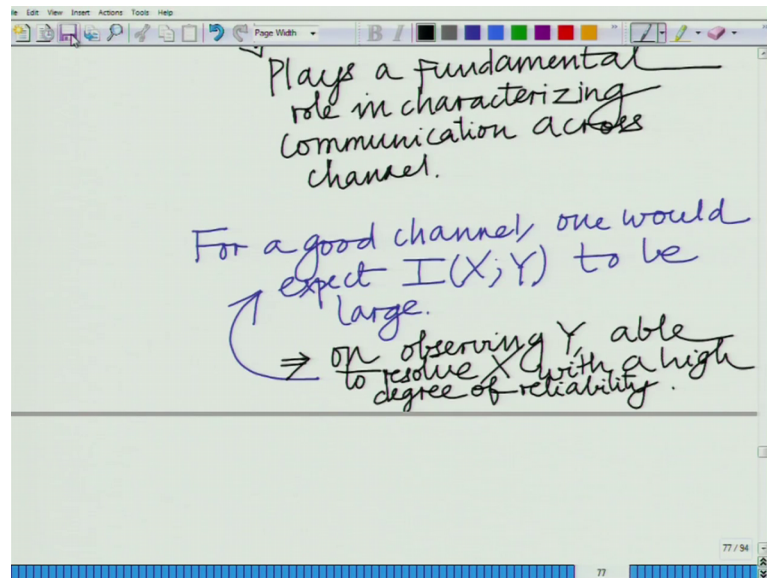 le Edit View Insert Actions Tools Help
Page Width
B I
Plays a fundamental
role in characterizing
communication across
channel.
For a good channel, one would
expect I(X;Y) to be
large.
⇒ on observing Y, able
to resolve X with a high
degree of reliability.
77 / 94
77